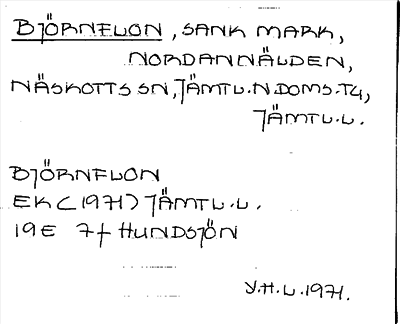 BJÖRNFLON, SANK MARK,
NORDANNÄLDEN,
NÄSKOTTS SN, JÄMTL.N DOMS.TG,
JÄMTL.L.
BJÖRNFLON
EK (1971) JÄMTL.L.
19E 7f HUNDSJÖN
Y.H.L.1971.